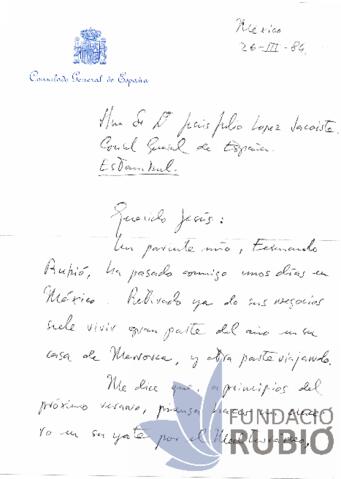 Mexico
26-III-84
Consulado General de España
Ilmo Sr D. Jesús Julio Lopez Jacoiste
Consul General de España
Estambul.
Querido Jesús:
Un pariente mio, Fernando
Rubió, ha pasado conmigo unos días en
México. Retirado ya de sus negocios
suele vivir gran parte del año en su
casa de Menorca, y otra parte viajando.
Me dice que, a principios del
próximo verano, piensa hacer un cruce-
ro en su yate por el Mediterráneo,
FUNDACIÓ
RUBIÓ